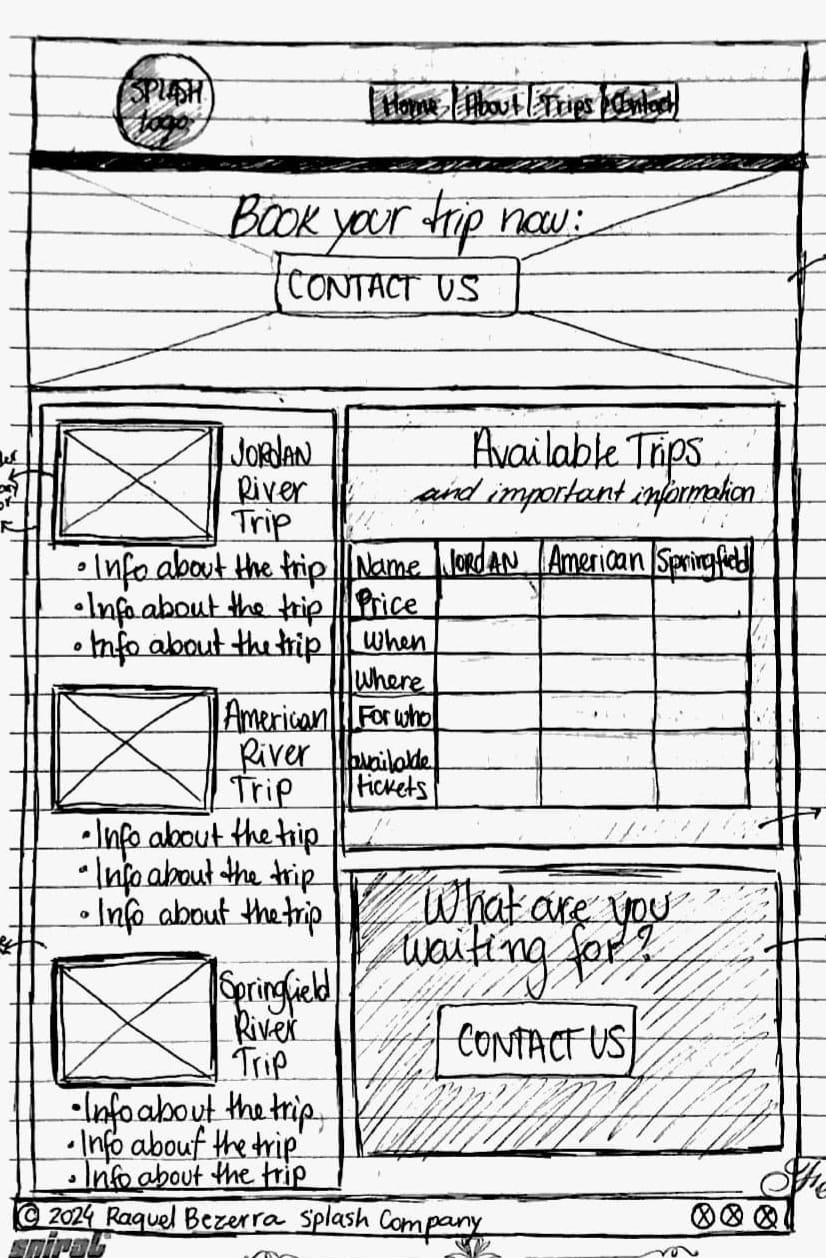 SPLASH
logo
Home About Trips Contact
Book your trip now:
CONTACT US
JORDAN
River
Trip
• Info about the trip
• Info about the trip
• Info about the trip
American
River
Trip
• Info about the trip
• Info about the trip
• Info about the trip
Springfield
River
Trip
• Info about the trip
• Info about the trip
• Info about the trip
Available Trips
and important information
Name JORDAN American Springfield
Price
When
Where
For who
available
tickets
What are you
waiting for?
CONTACT US
© 2024 Raquel Bezerra Splash Company
spiral